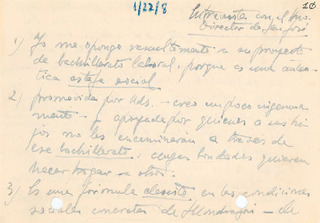 1/22/8
20
Entrevista con el Ins.
Director de
1) Yo me opongo resueltamente a su proyecto
de bachillerato laboral, porque es una autén-
tica estafa social
2) promovida por Uds. - creo un poco ingenua
mente - y apoyada por quienes a sus hi-
jos no les encaminarán a traves de
ese bachillerato, cuyas bondades quieren
hacer tragar a otros.
3) Es una fórmula absurda en las condiciones
sociales concretas de Mondragón - de